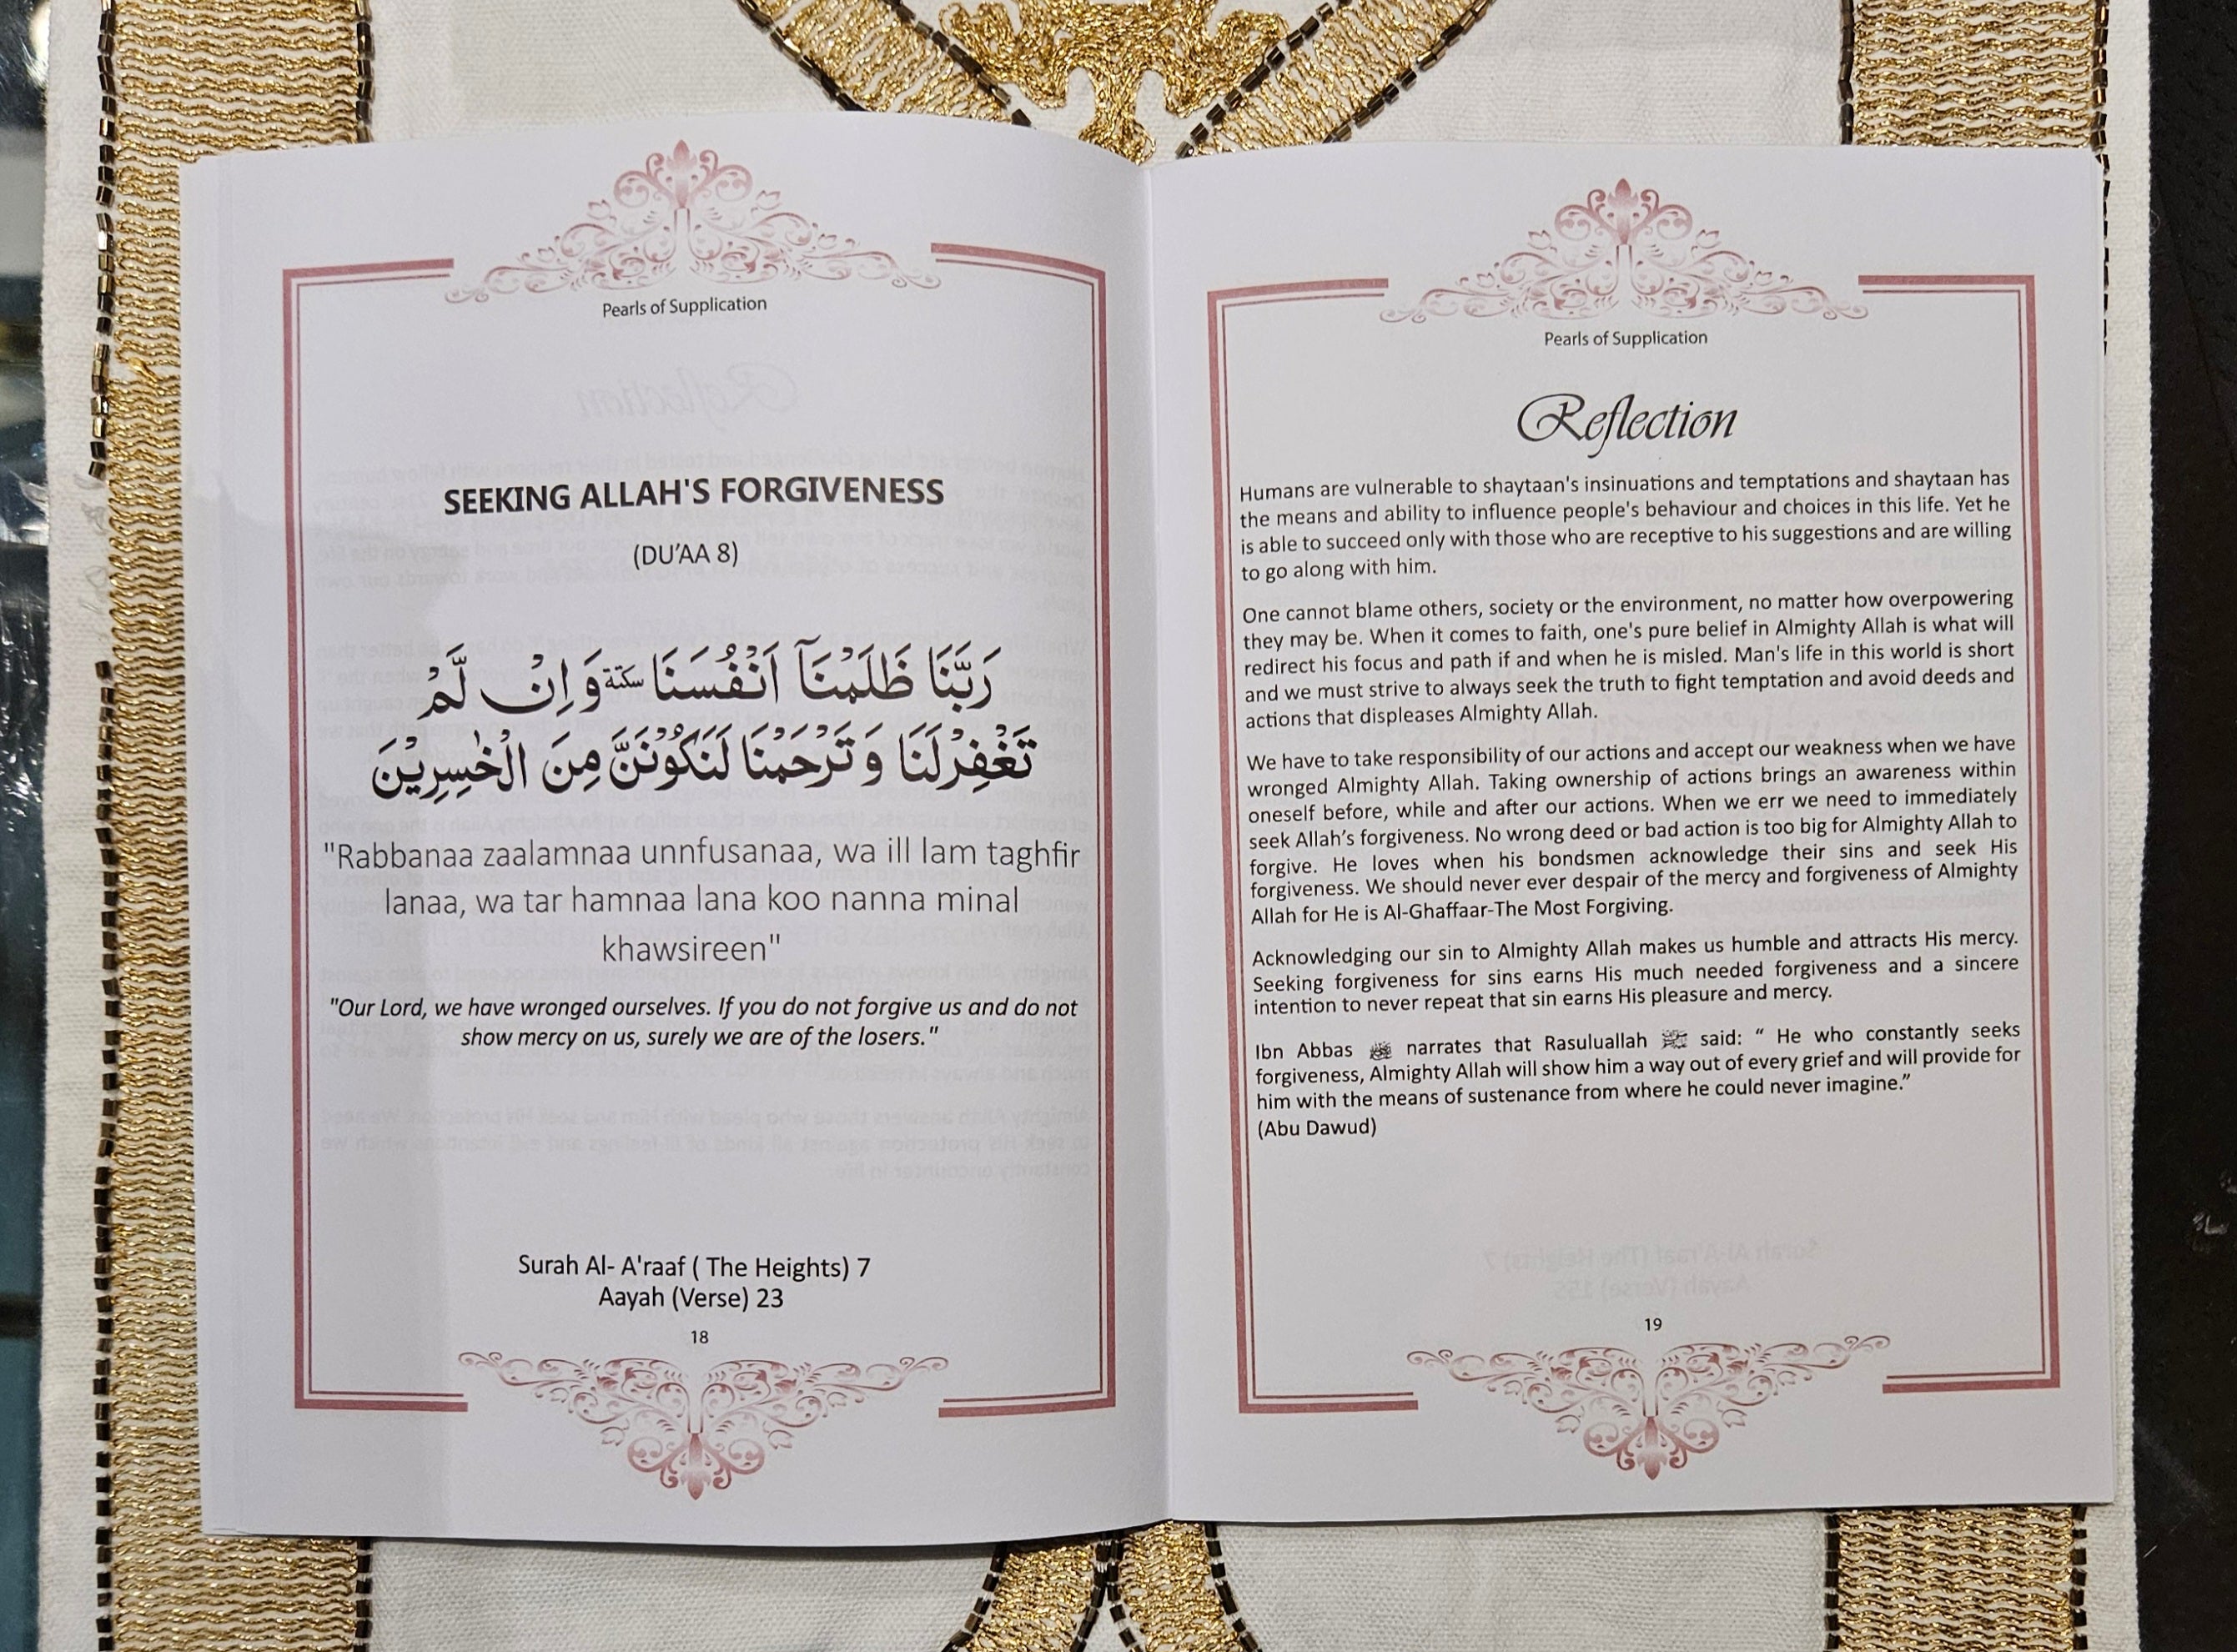 Pearls of Supplication
SEEKING ALLAH'S FORGIVENESS
(DU’AA 8)
رَبَّنَا ظَلَمْنَآ اَنْفُسَنَا سكتة وَ اِنْ لَّمْ
تَغْفِرْلَنَا وَ تَرْحَمْنَا لَنَكُوْنَنَّ مِنَ الْخٰسِرِيْنَ
"Rabbanaa zaalamnaa unnfusanaa, wa ill lam taghfir
lanaa, wa tar hamnaa lana koo nanna minal
khawsireen"
"Our Lord, we have wronged ourselves. If you do not forgive us and do not
show mercy on us, surely we are of the losers."
Surah Al- A'raaf ( The Heights) 7
Aayah (Verse) 23
18
Pearls of Supplication
Reflection
Humans are vulnerable to shaytaan's insinuations and temptations and shaytaan has
the means and ability to influence people's behaviour and choices in this life. Yet he
is able to succeed only with those who are receptive to his suggestions and are willing
to go along with him.
One cannot blame others, society or the environment, no matter how overpowering
they may be. When it comes to faith, one's pure belief in Almighty Allah is what will
redirect his focus and path if and when he is misled. Man's life in this world is short
and we must strive to always seek the truth to fight temptation and avoid deeds and
actions that displeases Almighty Allah.
We have to take responsibility of our actions and accept our weakness when we have
wronged Almighty Allah. Taking ownership of actions brings an awareness within
oneself before, while and after our actions. When we err we need to immediately
seek Allah’s forgiveness. No wrong deed or bad action is too big for Almighty Allah to
forgive. He loves when his bondsmen acknowledge their sins and seek His
forgiveness. We should never ever despair of the mercy and forgiveness of Almighty
Allah for He is Al-Ghaffaar-The Most Forgiving.
Acknowledging our sin to Almighty Allah makes us humble and attracts His mercy.
Seeking forgiveness for sins earns His much needed forgiveness and a sincere
intention to never repeat that sin earns His pleasure and mercy.
Ibn Abbas narrates that Rasuluallah ﷺ said: “ He who constantly seeks
forgiveness, Almighty Allah will show him a way out of every grief and will provide for
him with the means of sustenance from where he could never imagine.”
(Abu Dawud)
19